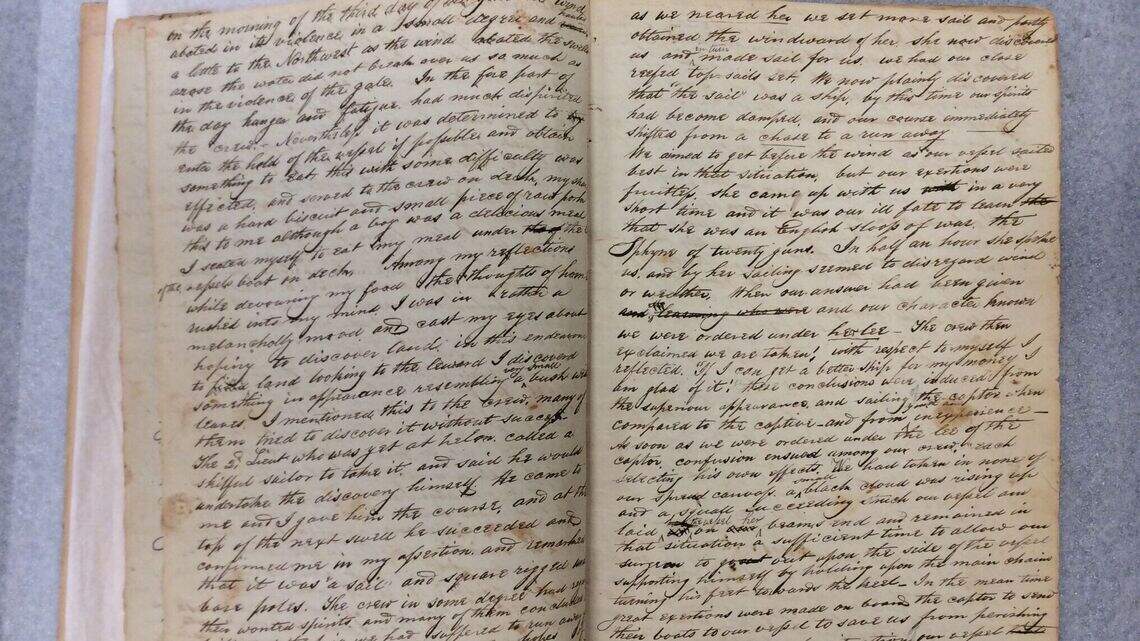 on the morning of the third day of wind
abated in its violence in a small degree and hauled
a little to the Northwest as the wind abated the swells
arose the water did not break over us so much as
in the violence of the gale. In the fore part of
the day hunger and fatigue had much dispirited
the crew,- Nevertheless it was determined to
enter the hold of the vessel if possible, and obtain
something to eat this with some difficulty was
effected, and served to the crew on deck, my share
was a hard biscuit and small piece of raw pork
this to me although a boy was a delicious meal
I seated myself to eat my meal under the
of the vessels boat on deck. Among my reflections
while devouring my food the thoughts of home
rushed into my mind, I was in rather a
melancholly mood and cast my eyes about
hoping to discover land, in this endeavour
to find land looking to the leward I discoverd
something in appearance resembling a very small bush with
leaves. I mentioned this to the crew, many of
them tried to discover it without success
The 2d Lieut who was yet at helm, called a
skilful sailor to take it, and said he would
undertake the discovery himself. He came to
me and I gave him the course, and at the
top of the next swell he succeeded and
confirmed me in my assertion, and remarked
that it was "a sail" and square rigged under
bare poles. The crew in some degree had
their wonted spirits, and many of them concluded
we had suffered to run away
as we neared her we set more sail and partly
obtained the windward of her, she now discovered
us and in turn made sail for us, we had our close
reefed top-sails set. We now plainly discovered
that "the sail" was a ship, by this time our spirits
had become damped, and our course immediately
shifted from a chase to a run away
We aimed to get before the wind as our vessel sailed
best in that situation, but our exertions were
fruitless, she came up with us in a very
short time and it was our ill fate to learn the
that she was an English sloop of war, the
Sphynx of twenty guns. In half an hour she spoke
us, and by her sailing seemed to disregard wind
or weather. When our answer had been given
and learning who were and our character known
we were ordered under her lee - The crew then
exclaimed we are taken! with respect to myself I
reflected. "If I can get a better ship for my money I
am glad of it! these conclusions were induced from
the superiour appearance, and sailing of the captor when
compared to the captive - and from inexperience -
As soon as we were ordered under the lee of the
captor, confusion ensued among our crew, each
selecting his own effects. We had taken in none of
our spread canvass. a small black cloud was rising up
and a squall succeeding such our vessel am
laid on her beams end and remained in
that situation a sufficient time to allow our
surgeon to get out upon the side of the vessel
supporting himself by holding upon the main chains
turning his feet towards the keel - In the mean time
great exertions were made on board the captor to send
their boats to our vessel to save us from perishing
our vessel